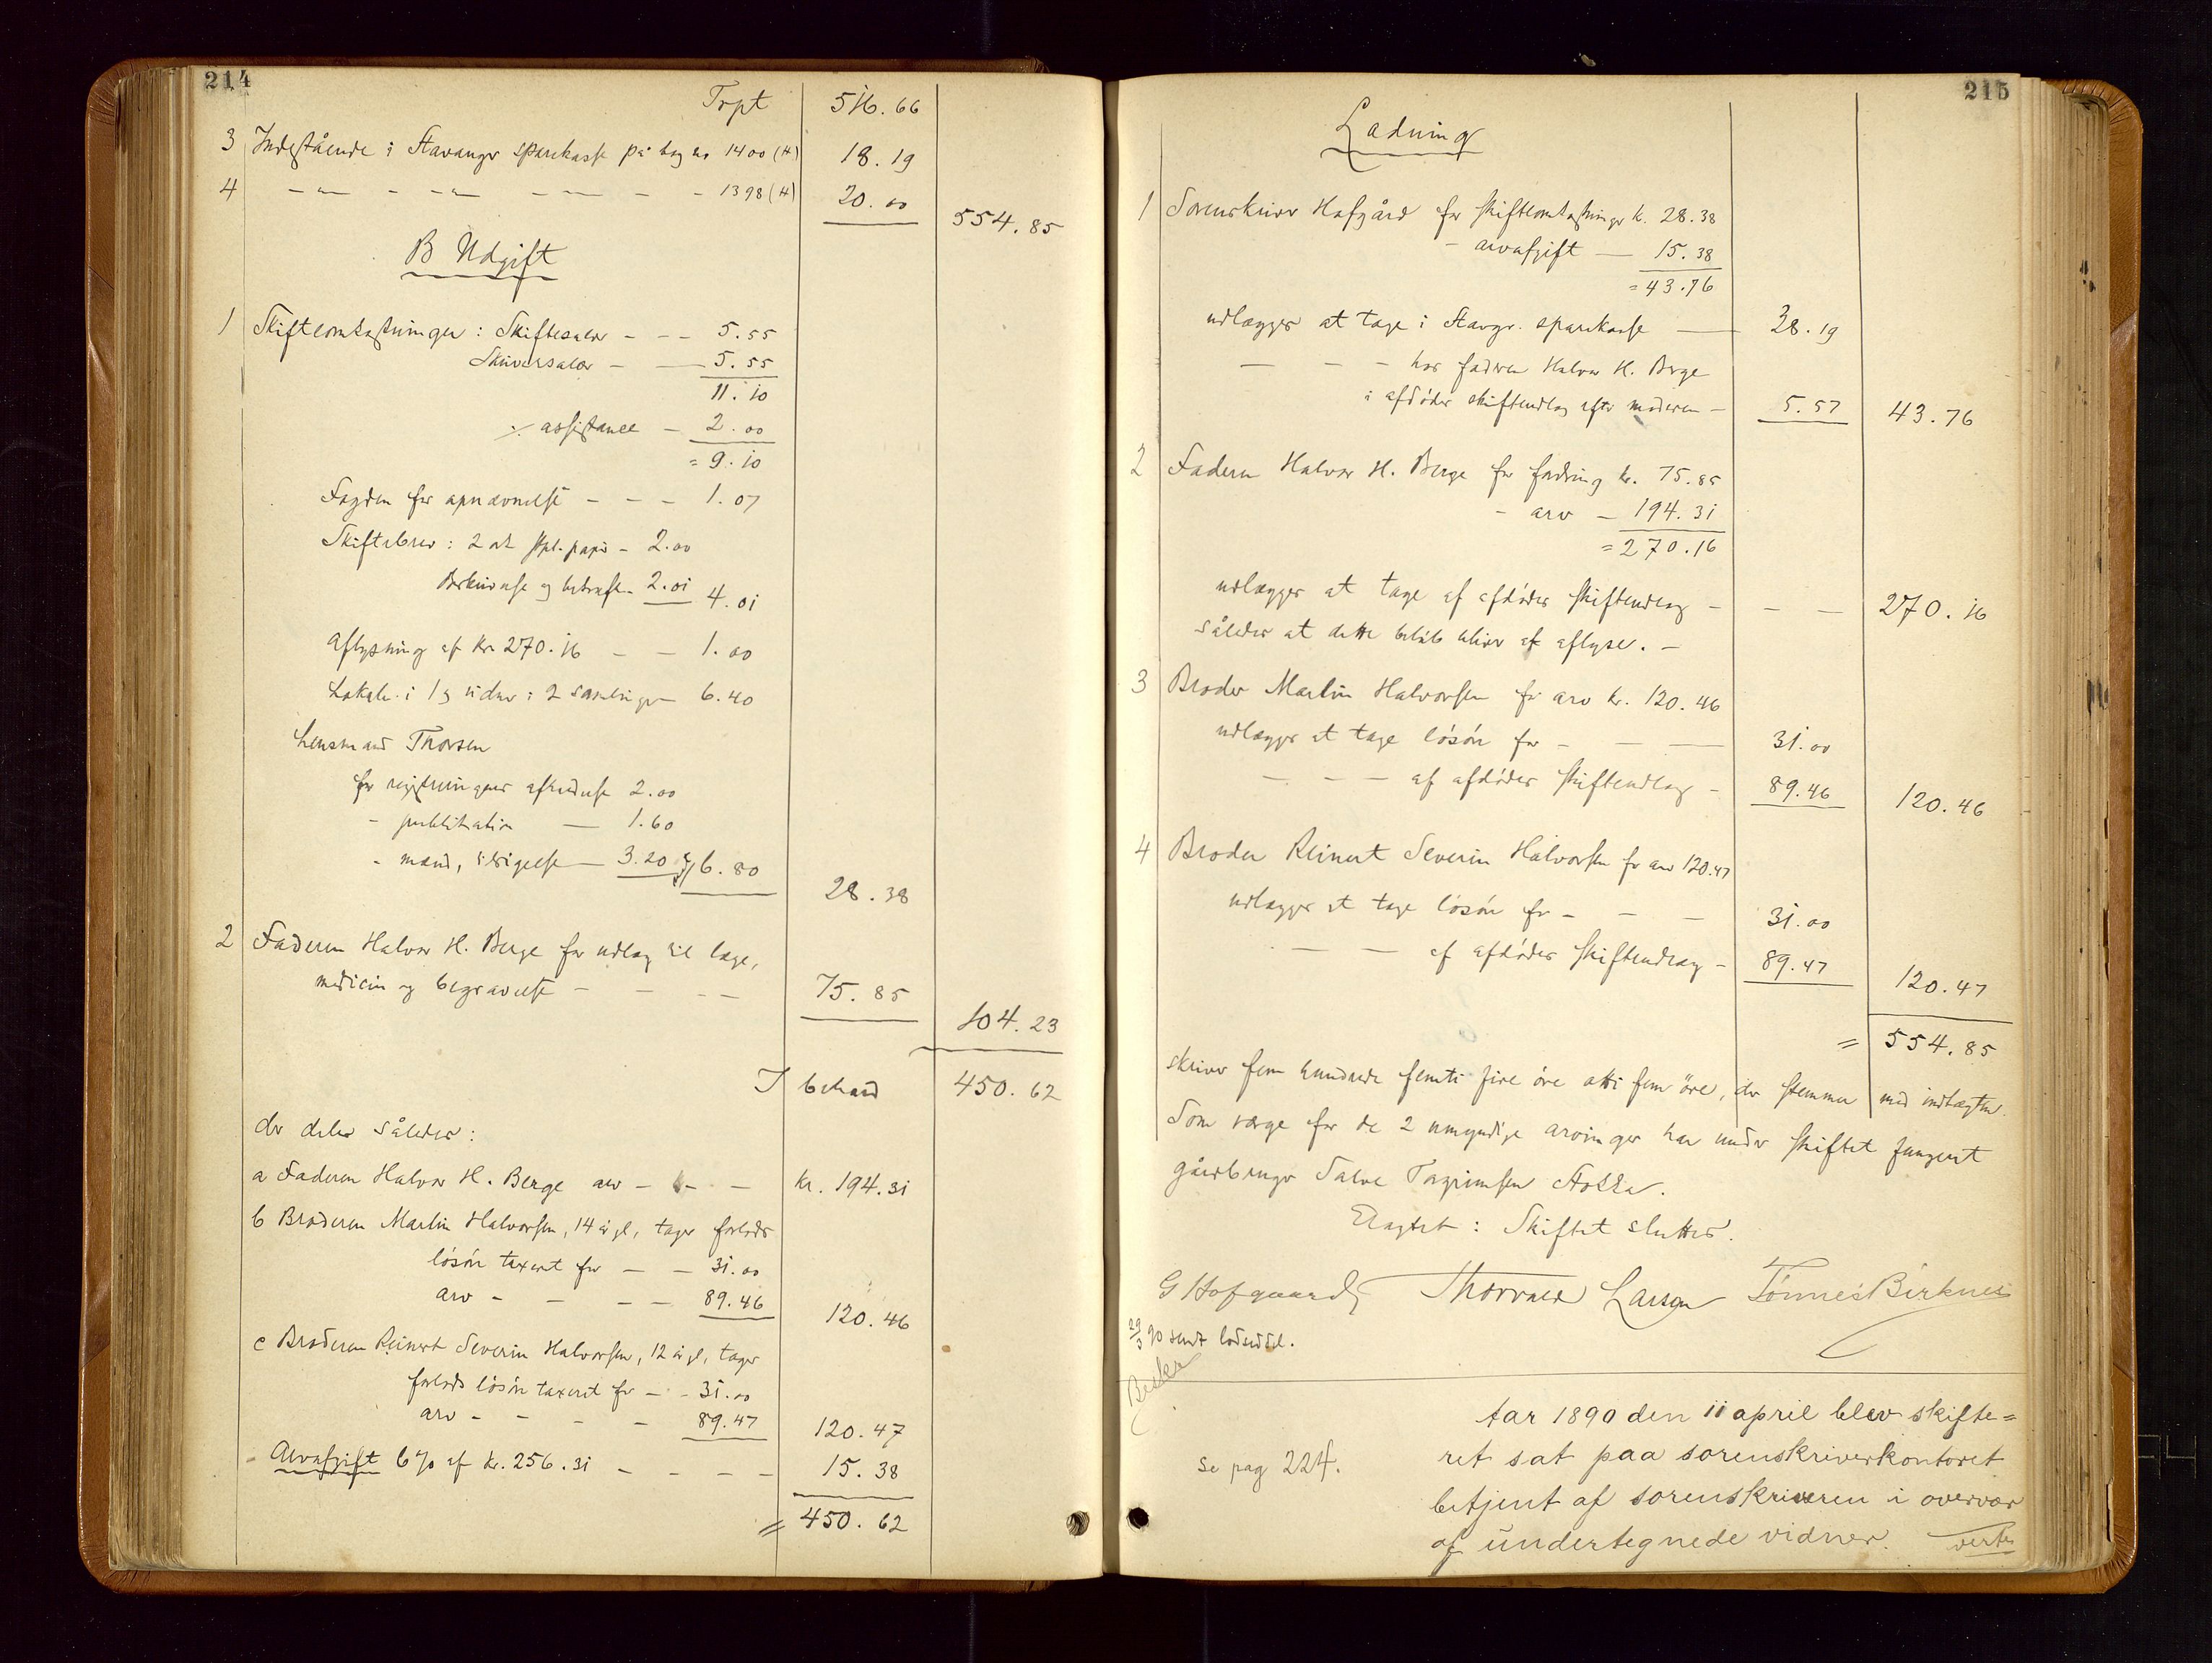 214
Trpt 516.66
3 Indestående i Stavanger sparekasse på bog no 1400 (H) 18.19
4 — „ — - — „ — - — „ — - - 1398 (H) 20.00
554.85
B Udgift
1 Skifteomkostninger: Skiftesalær - - - 5.55
Skriversalær - — 5.55
11.10
·/. assistance - 2.00
= 9.10
Fogden for opnævnelse - - - 1.07
Skiftebrev: 2 ark stpl. papir - 2.00
Beskrivelse og bekræft. 2.01 4.01
Aflysning af kr 270.16 - - 1.00
Lokale i 13 sider i 2 samlinger 6.40
Lensmand Thorsen
for registreringens afholdelse 2.00
- publikation — 1.60
- mænd, tilsigelse — 3.20 6.80
28.38
2 Faderen Halvor H. Berge for udlæg til læge,
medicin og begravelse - - - - 75.85
104.23
I behold 450.62
der deles således:
a Faderen Halvor H. Berge arv - - - kr. 194.31
b Broderen Martin Halvorsen, 14 år gl, tager forlods
løsøre taxeret for - - 31.00
arv - - - - 89.46
120.46
c Broderen Reinert Severin Halvorsen, 12 år gl, tager
forlods løsøre taxeret for - - 31.00
arv - - - - 89.47
120.47
Arvafgift 6 % af kr. 256.31 - - - - 15.38
= 450.62
215
Lodning
1 Sorenskriver Hofgård for skifteomkostninger k. 28.38
- arvafgift — 15.38
= 43.76
udlægges at tage i Stavgr. sparekasse — 38.19
— - - hos faderen Halvor H. Berge
i afdødes skifteudlæg efter moderen - 5.57 43.76
2 Faderen Halvor H. Berge for fordring kr. 75.85
- arv - 194.31
= 270.16
udlægges at tage af afdødes skifteudlæg - - - 270.16
således at dette beløb bliver at aflyse. -
3 Broder Martin Halvorsen for arv kr. 120.46
udlægges at tage løsøre for - - — 31.00
— - - af afdødes skifteudlæg - 89.46 120.46
4 Broder Reinert Severin Halvorsen for arv 120.47
udlægges at tage løsøre for - - - 31.00
— — af afdødes skifteudlæg - 89.47
120.47
= 554.85
skriver fem hundrede femti fire øre otti fem öre, der stemmer med indtægten.
Som værge for de 2 umyndige arvinger har under skiftet fungeret
gårdbruger Salve Torgrimsen Stokka.
Eragtet: Skiftet sluttes.
G Hofgaard Thorvald Larsen Tönnes Birknes
29/3 90 sendt lodseddel.
Beskr
Aar 1890 den 11 april blev skifte=
ret sat paa sorenskriverkontoret
betjent af sorenskriveren i overvær
af undertegnede vidner. verte
Se pag 224.